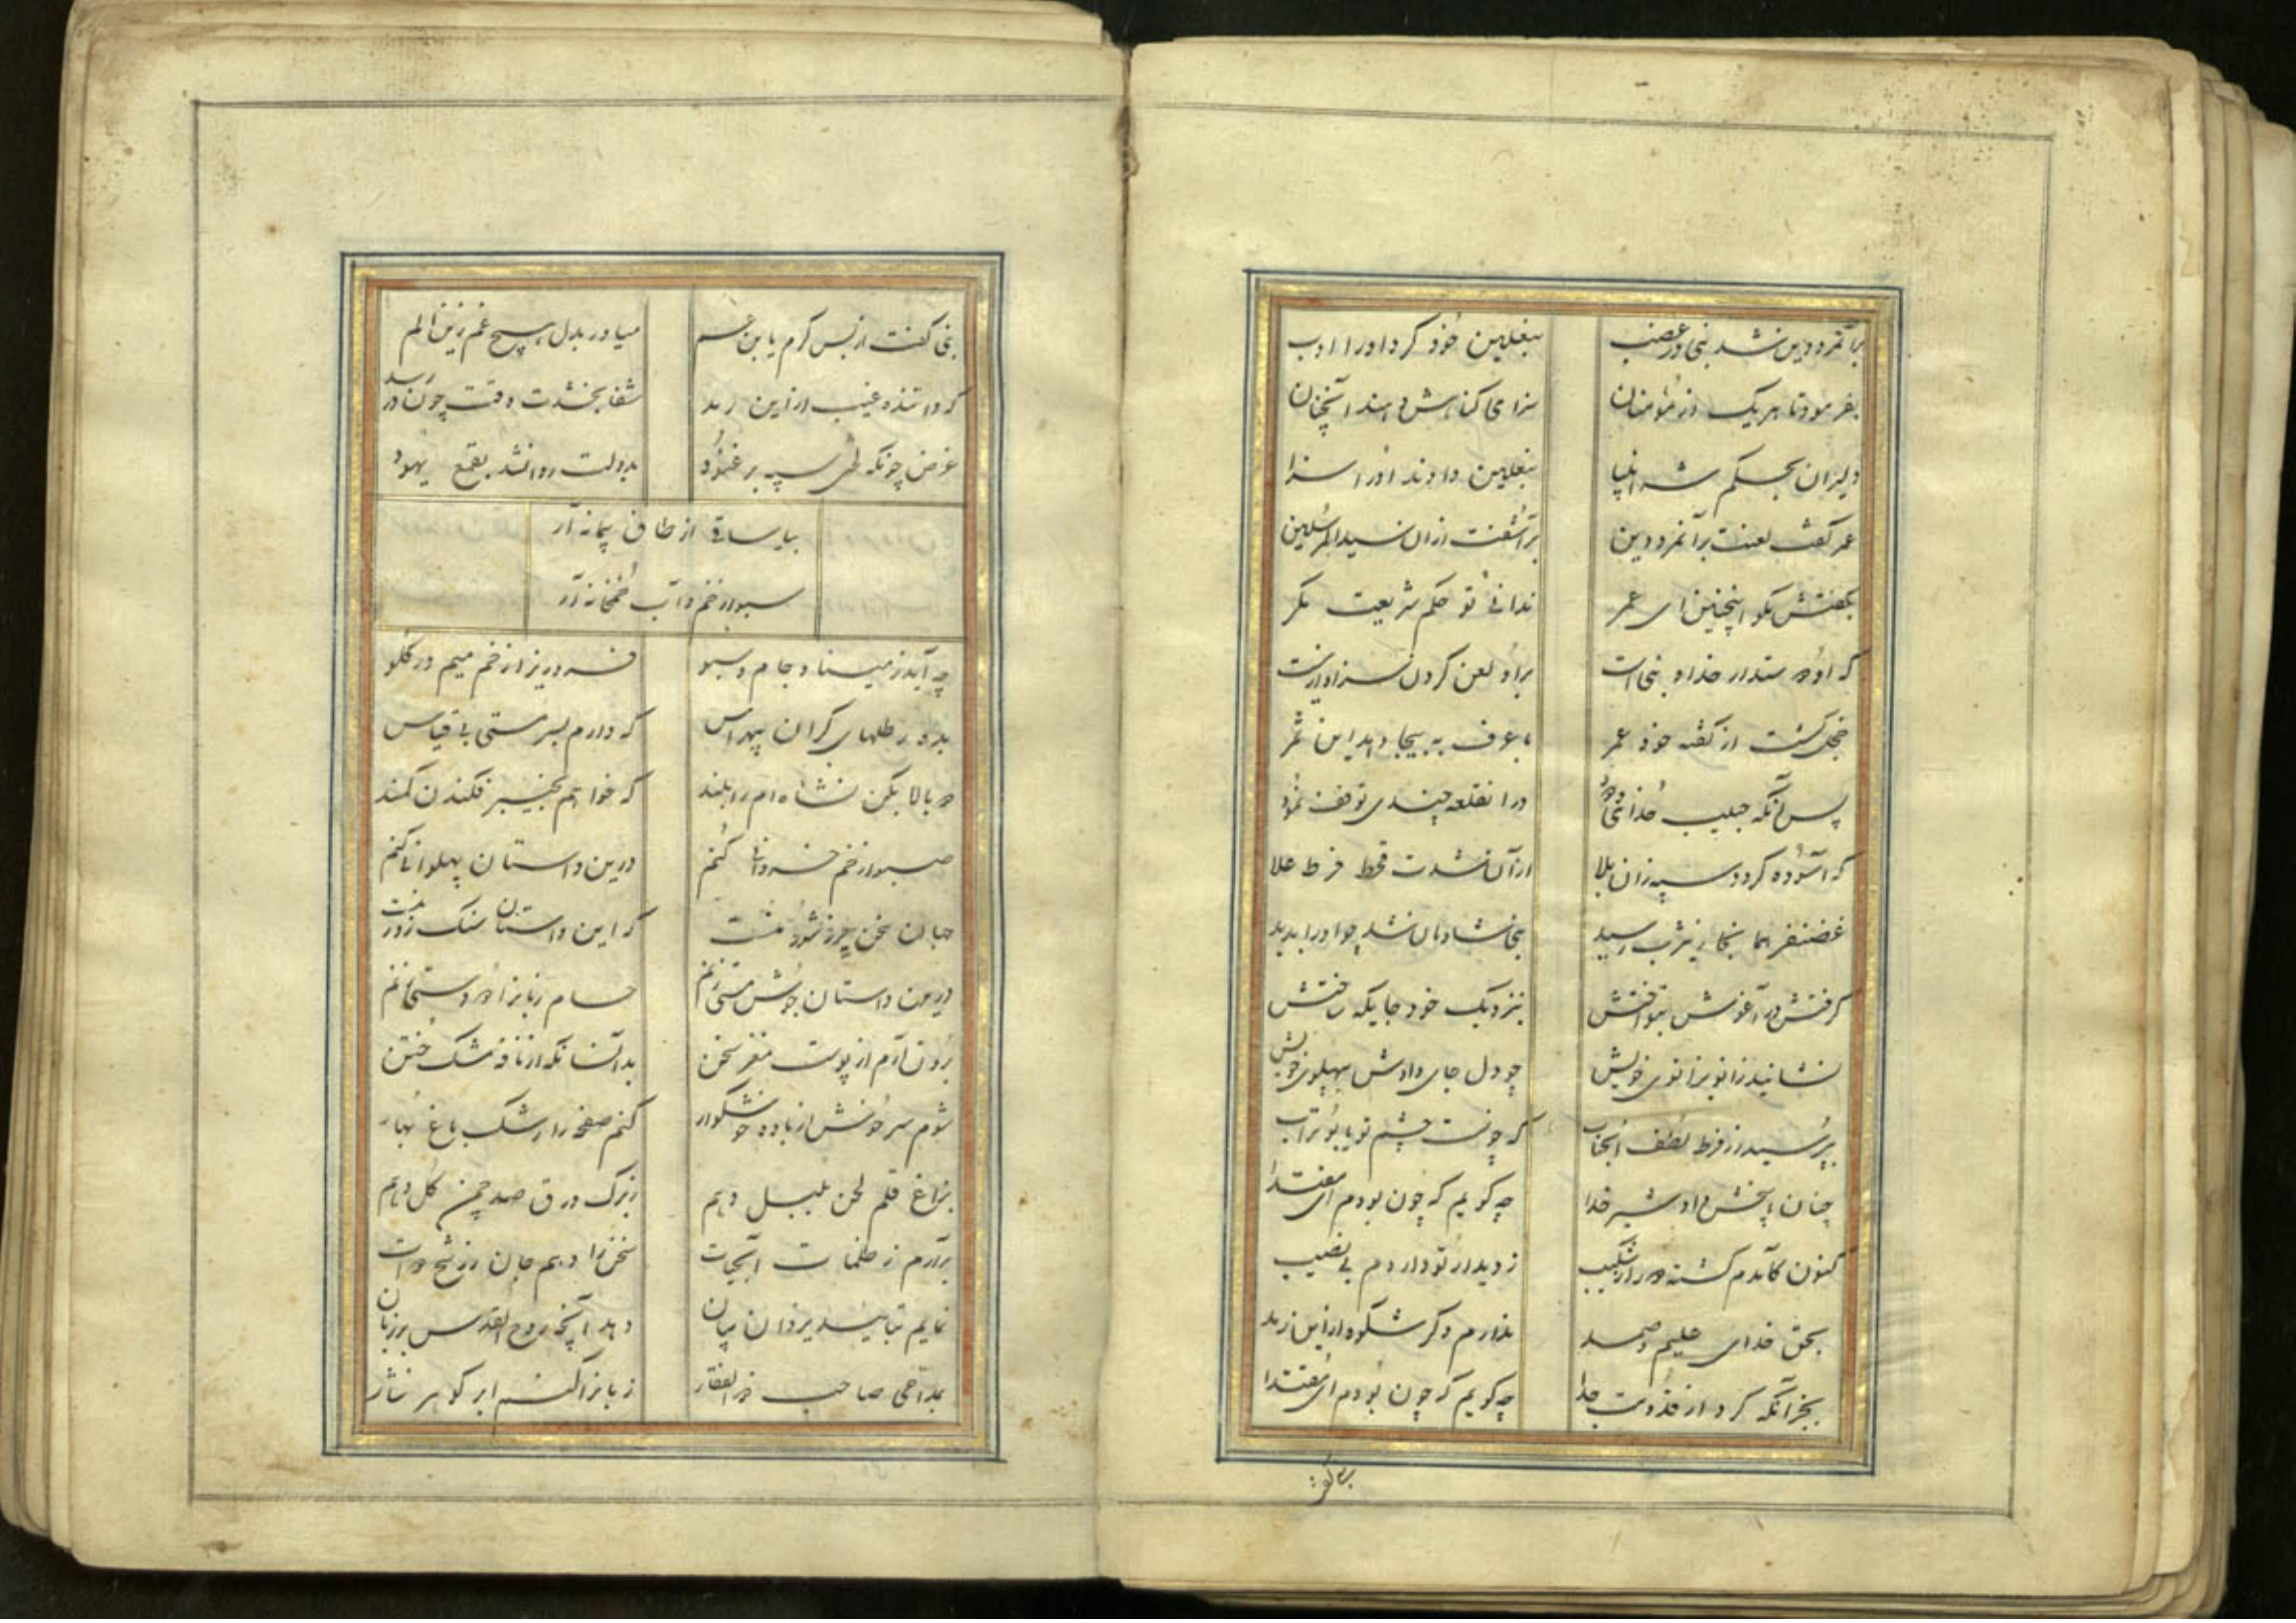 برآنمرد دین شد نبی در غضب بنعلین خود کرد او را ادب
بفرمود تا هریک از مؤمنان سزای گناهش دهند آنچنان
دلیران بحکم شه انبیا بنعلین دادند او را سزا
عمر گفت لعنت برآنمرد دین برآشفت ازان سیدالمرسلین
بگفتش مگو اینچنین ای عمر ندانی تو حکم شریعت مگر
که او دوستدار خدا و نبی است برو لعن کردن سزاوار نیست
خجل گشت از گفته خود عمر بلی حرف بیجا دهد این ثمر
پس آنگه حبیب خدای ودود در انقلعه چندی توقف نمود
که آسوده گردد سپه زان بلا ازآن شدت قحط فرط غلا
غضنفر همانجا ز یثرب رسید نبی شادمان شد چو او را بدید
گرفتش در آغوش بنواختش بنزدیک خود جایگه ساختش
نشانید زانو بزانوی خویش چو دل جای دادش بپهلوی خویش
بپرسید از فرط لطف آنجناب که چونست چشم تو یا بوتراب
چنان پاسخش داد شیر خدا چه گویم که چون بودم ای مقتدا
کنون کآمدم گشته در از شکیب ز دیدار تو داردم بی نصیب
بحق خدای علیم و صمد ندارم دگر شکوه از این رمد
بجز آنکه کرد از قدومت جدا چه گویم که چون بودم ای مقتدا
نبی گفت از بس کرم یا بن عم میاور بدل هیچ غم زین الم
که داننده غیب از این رمد شفا بخشدت وقت چون در رسد
غرض چونکه طی سپه بر غنود بدولت روانشد بقمع یهود
بیا ساقی از طاق پیمانه آر
سبو از خم و آب خمخانه آر
چه آید ز مینا و جام و سبو فرو ریز از خم میم در گلو
بده رطلهای گران بیهراس که دارم بسر مستی بی قیاس
دو بالا بکن نشاه ام را بلند که خواهم بخیبر فکندن کمند
صبو از خم خسروانی کنم درین داستان پهلوانی کنم
جهان سخن جز زشور منست که این داستان سنگ زور منست
درین داستان جوش مستی زنم حسام زبانرا دو دستی زنم
برون آرم از پوست مغز سخن بدآنسانکه از نافه مشک ختن
شوم سرخوش از باده خوشگوار کنم صفحه را رشک باغ بهار
بزاغ قلم لحن بلبل دهم زبرگ ورق صد چمن گل دهم
برآرم ز ظلمات آبحیات سخن را دهم جان زشح دوات
نمایم بتایید یزدان بیان دهد آنچه روح القدس بر زبان
بمداحی صاحب ذوالفقار زبانرا کنم ابر گوهر نثار